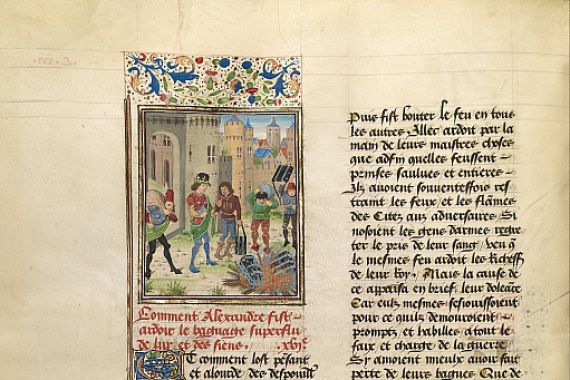 Comment Alexandre fist
ardoir le baguaige superflu
de luy et des siens. xvjᵉ
Et comment lost pesant
et alourde des despouill
Puis fist bouter le feu en tous
les autres Illec ardoit par la
main de leurs maistres choses
que adfin quelles feussent
prinses saulues et entieres
Ilz auoient souuenteffois res
traint les feux et les flames
des Citez aux aduersaires Si
nosoient les gens darmes regre
ter le pris de leur sang veu q
le mesmes feu ardoit les Richess
de leur Roy. Mais la cause de
ce appaisa en brief leur doleance
Car eulz mesmes sesiouissoient
pour ce quilz demouroient
promptz et habilles a tout le
faix et charge de la guerre
Si amoient mieulx auoir fait
perte de leurs bagues Que de